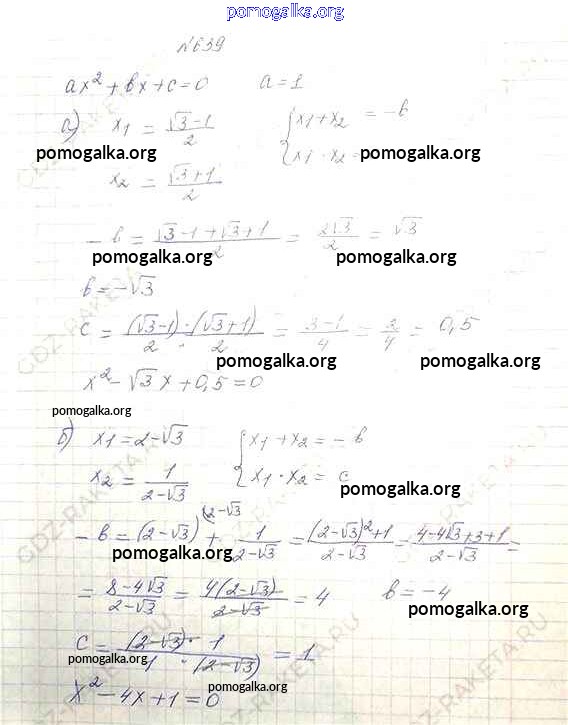 pomogalka.org
№639
ax² + bx + c = 0   a = 1
а) x₁ = (√3−1)/2   { x₁ + x₂ = −b
pomogalka.org   x₁ · x₂   pomogalka.org
x₂ = (√3+1)/2
−b = (√3−1+√3+1)/2 = 2√3/2 = √3
pomogalka.org   pomogalka.org
b = −√3
c = (√3−1)·(√3+1)/2·2 = (3−1)/4 = 2/4 = 0,5
pomogalka.org   pomogalka.org
x² − √3x + 0,5 = 0
pomogalka.org
б) x₁ = 2−√3   { x₁ + x₂ = −b
x₂ = 1/(2−√3)   x₁ · x₂ = c
pomogalka.org
−b = (2−√3)^(2−√3 + 1/(2−√3) = ((2−√3)²+1)/(2−√3) = (4−4√3+3+1)/(2−√3) =
pomogalka.org
= (8−4√3)/(2−√3) = 4(2−√3)/(2−√3) = 4   b = −4
pomogalka.org   pomogalka.org
c = (2−√3)·1/1·(2−√3) = 1
pomogalka.org   pomogalka.org
x² − 4x + 1 = 0
GDZ-RAKETA.RU